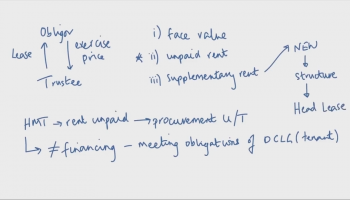 Obligor
Lease
exercise price
Trustee
i) face value
* ii) unpaid rent
iii) supplementary rent
NEW
structure
Head Lease
HMT → rent unpaid → procurement U/T
↳ ≠ financing – meeting obligations of DCLG (tenant)